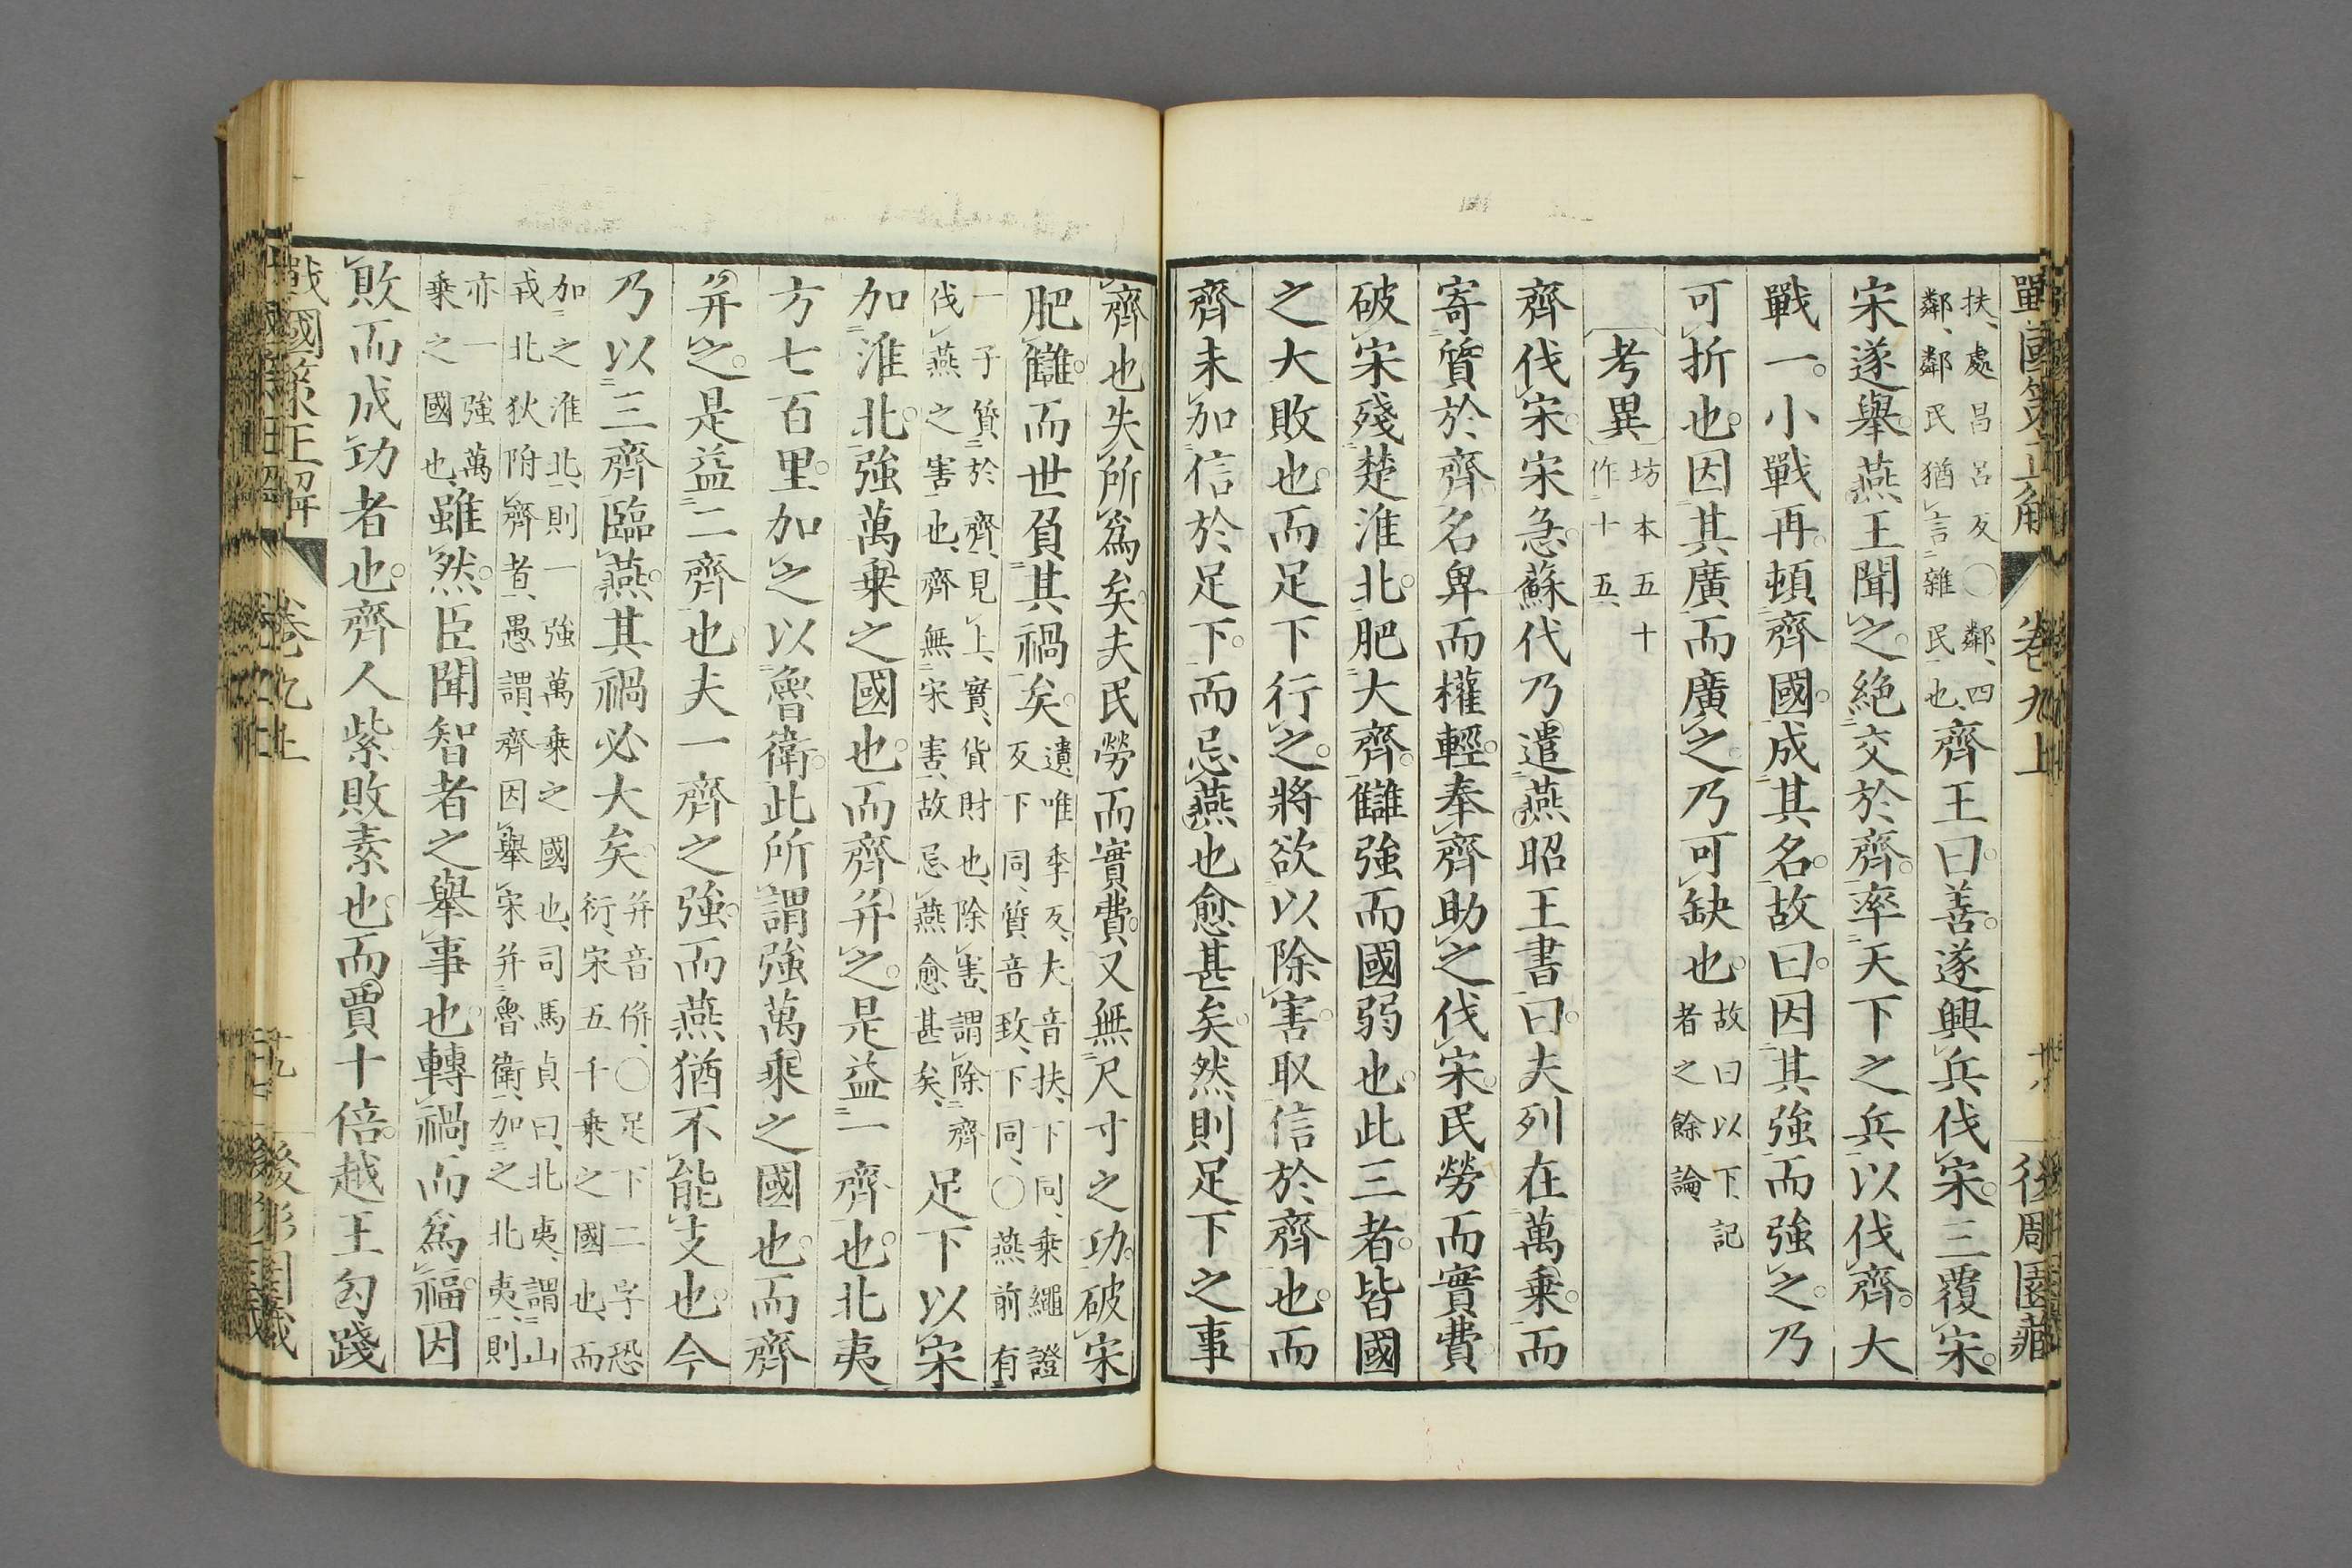 戰國策正解 卷九上 十八 後周園藏
扶、處昌呂反○鄰、四
鄰、鄰民猶言雜民也、齊王曰善。遂興兵伐宋。三覆宋。
宋遂舉。燕王聞之。絕交於齊。率天下之兵以伐齊。大
戰一。小戰再。頓齊國。成其名。故曰。因其強而強之。乃
可折也。因其廣而廣之。乃可缺也。故曰以下、記
者之餘論、
考異 坊本五十
作十五、
齊伐宋。宋急。蘇代乃遣燕昭王書曰。夫列在萬乘。而
寄質於齊。名卑而權輕。奉齊助之伐宋。民勞而實費。
破宋殘楚淮北。肥大齊。讎強而國弱也。此三者。皆國
之大敗也。而足下行之。將欲以除害取信於齊也。而
齊未加信於足下。而忌燕也愈甚矣。然則足下之事
齊也失所爲矣。夫民勞而實費。又無尺寸之功。破宋
肥讎。而世負其禍矣。遺唯季反、夫音扶、下同、乘繩證
反下同、質音致、下同、○燕前有
一子質於齊、見上、實、貨財也、除害、謂除齊
伐燕之害也、齊無宋害、故忌燕愈甚矣、足下以宋
加淮北。強萬乘之國也。而齊并之。是益一齊也。北夷
方七百里。加之以魯衛。此所謂強萬乘之國也。而齊
并之。是益二齊也。夫一齊之強。而燕猶不能支也。今
乃以三齊臨燕。其禍必大矣。并音併、○足下二字恐
衍、宋五千乘之國也、而
加之淮北、則一強萬乘之國也、司馬貞曰、北夷、謂山
戎北狄附齊者、愚謂、齊因舉宋并魯衛、加之北夷、則
亦一強萬
乘之國也、雖然。臣聞智者之舉事也。轉禍而爲福。因
敗而成功者也。齊人紫敗素也。而賈十倍。越王勾踐
戰國策正解 卷九上 十九